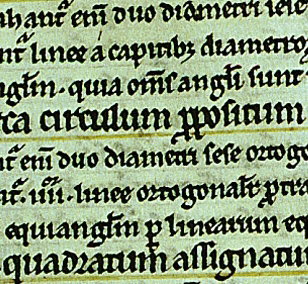 hant᷑ em̄ duo diametri sese
nt᷑ linee a capitibꝫ diametroꝝ
nglm̄. quia om̄s angli sunt
ta circulum ꝓpositum
nt᷑ em̄ duo diametri sese ortogo
nt᷑. iiii. linee ortogonalr̄ ꝓtra
equianglm̄ ꝑ linearum eq
quadratum assignatu